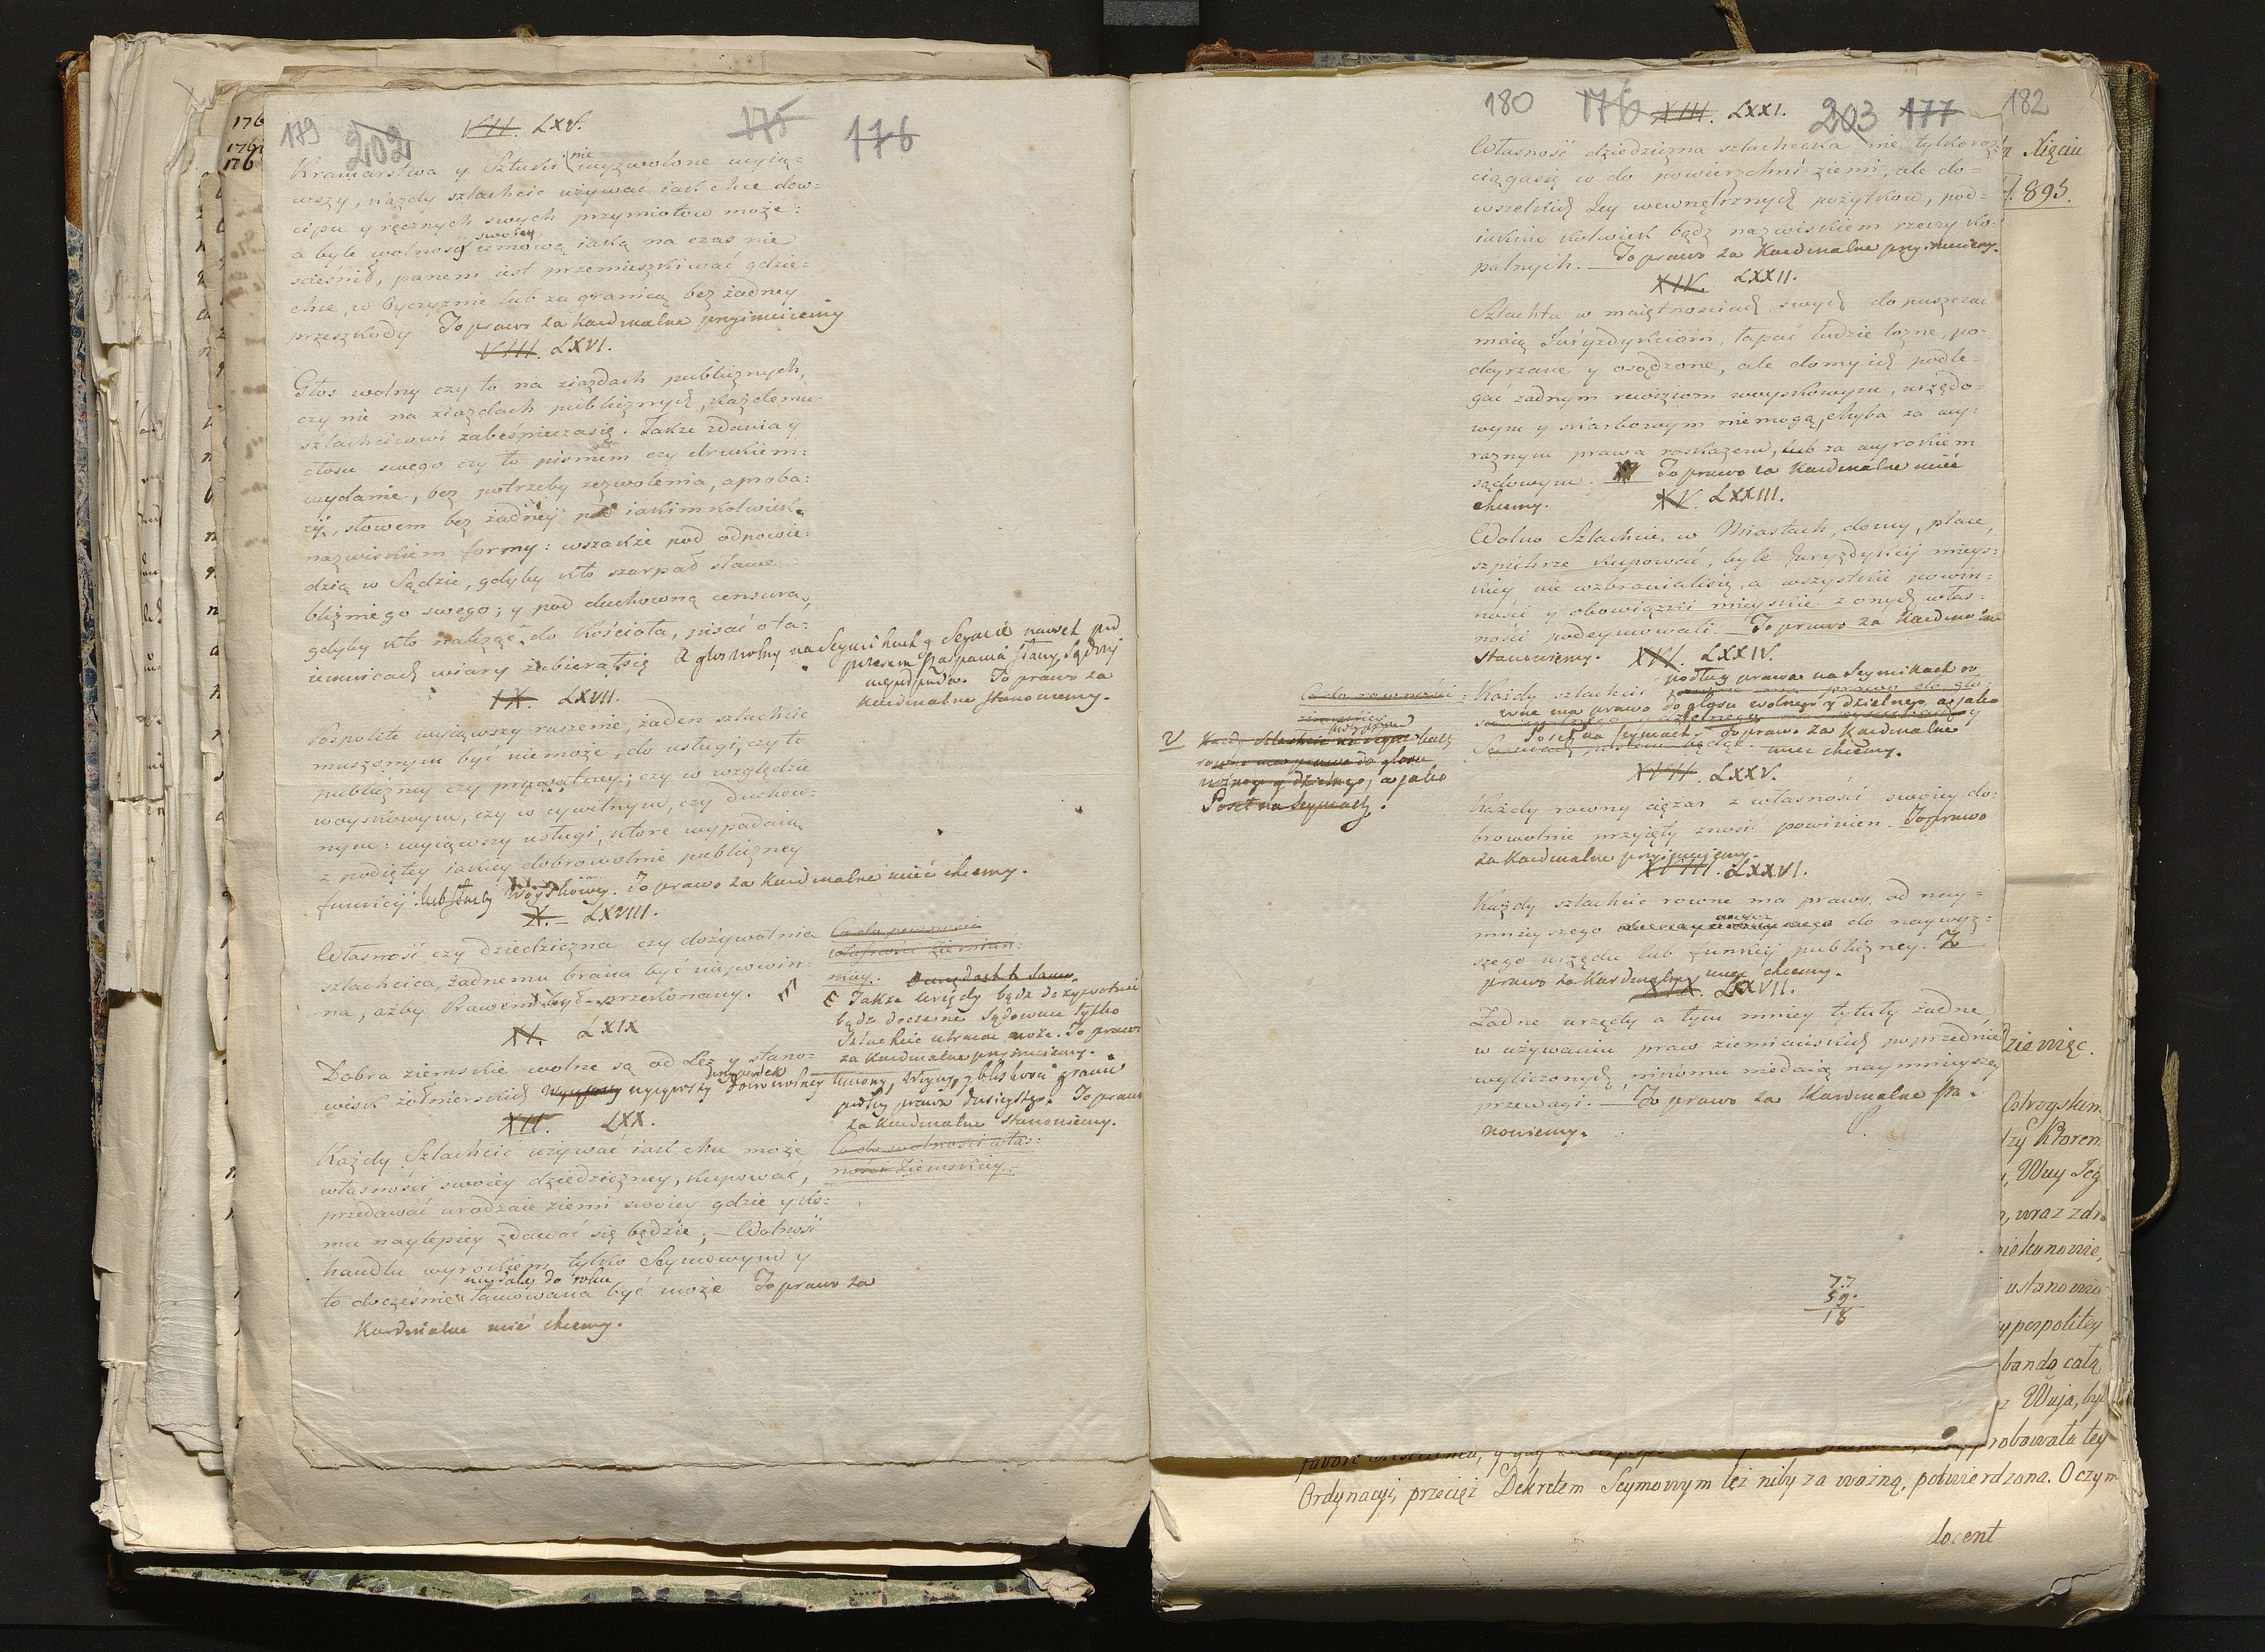 179 202 VII. LXV. 175 176
Kramarstwa y Sztuki nie wyzwolone wyią=
wszy, każdy szlachcic używać iak chce dow=
cipu y ręcznych swych przymiotow może:
a byle wolności swoiey umową iaką na czas nie
ścieśnił, panem iest przemieszkiwać gdzie=
chce, w Oyczyznie lub za granicą bez żadney
przeszkody To prawo za kardynalne przyimuiemy
VIII. LXVI.
Głos wolny czy to na ziazdach publicznych,
czy nie na ziazdach publicznych, każdemu
szlachcicowi zabeśpieczasię. Także zdania y
głosu swego czy to pismem czy drukiem=
wydanie, bez potrzeby zezwolenia, aproba=
cyi, słowem bez żadney pod iakimkolwiek
nazwiskiem formy: wszakże pod odpowie=
dzią w Sądzie, gdyby kto szarpał sławe
bliźniego swego; y pod duchowną censurą,
gdyby kto należąć do Kościoła, pisać o ta=
iemnicach wiary zabierał się A głos wolny na Seymikach y Seymie nawet pod
pozorem szarpania sławy, Sądowi
niepodpada. To prawo za
kardinalne stanowiemy.
IX. LXVII.
Pospolite wyiąwszy ruszenie, żaden szlachcic
muszonym być niemoże, do usługi, czy to
publiczney czy prywatney; czy w względzie
woyskowym, czy w cywilnym, czy duchow=
nym: wyiąwszy usługi, które wypadaią
z podiętey iakiey dobrowolnie publiczney
funkcij lub służby Woyskowey. To prawo za kardinalne mieć chcemy.
X. LXVIII.
Własność czy dziedziczna czy dożywotnia
szlachcica, żadnemu braniu być niepowin=
na, ażby Prawem był przekonany.
Co do pewności
własności ziemiań=
skiey.
Także urzędy bądz dożywotnie
bądz doczesne Sądownie tylko
Szlachcic utracać może. To prawo
za kardinalne przyimuiemy.
XI. LXIX
Dobra ziemskie wolne są od Leż y stano=
wisk żołnierskich wyiąwszy przypadek
podług prawa dusieyszego. To prawo
za kardinalne stanowiemy.
XII. LXX.
Każdy Szlachcic używać iak chce może
własności swoiey dziedziczney, kupować,
przedawać urodzaie ziemi swoiey gdzie y ko=
mu naylepiey zdawać się będzie; – Wolność
handlu wyrokiem tylko Seymowym y
to docześnie naydaley do roku tamowana być może To prawo za
kardinalne mieć chcemy.
Co do wolności włas=
ności Ziemskiey.
180 176 XIII. LXXI. 203 177
Własność dziedziczna szlachecka nie tylko roz=
ciągasię do powierzchni ziemi, ale do=
wszelkich Iey wewnętrznych pożytkow, pod=
iakim kolwiek bądz nazwiskiem rzeczy ko=
palnych. – To prawo za Kardinalne przyimuiemy.
XIV. LXXII.
Szlachta w maiętnościach swych dopuszczać
maią Juryzdykciom, łapać ludzie lozne, po=
deyrzane y osądzone, ale domy ich podle=
gać żadnym rewizyom woyskowym, urzędo=
wym y skarbowym niemogą, chyba za wy=
raznym prawa roskazem, lub za wyrokiem
sądowym. To prawo za Kardinalne mieć
chcemy.
XV. LXXIII.
Wolno Szlachcie, w Miastach, domy, place,
szpichrze kupować, byle Juryzdykcij miejs=
kiey nie wzbranialisię, a wszystkie powin=
ności y obowiązki mieyskie z onych włas=
ności podeymowali. To prawo za kardinalne
stanowiemy.
XVI. LXXIV.
Każdy szlachcic podług prawa na Seymikach ro
wne ma prawo do głosu wolnego y dzielnego, a jako
Poseł na Seymach. To prawo za kardinalne
mieć chcemy.
Co do rowności
rowne ma prawo do głosu
wolnego y dzielnego, a jako
Poseł na Seymach.
XVII. LXXV.
Każdy rowny ciężar z własności swoiey do=
browolnie przyięty znosić powinien. To prawo
za kardinalne przyimuiemy.
XVIII. LXXVI.
Każdy szlachcic rowne ma prawo, od nay=
mnieyszego do naywyż=
szego urzędu lub funkcij publiczney. To
prawo za kardinalne mieć chcemy.
XIX. LXXVII.
Żadne urzędy a tym mniey tytuły żadne,
w używaniu praw ziemiańskich poprzednio
wyliczonych, nikomu niedaią naymnieyszey
przewagi. – To prawo za Kardinalne sta=
nowiemy.
77
59.
18
182
Xięciu
895.
dziewięc.
Ostrogskim
Ktorem
Wuy Jeg
wraz zdr
ustanowio
ypospolitey
bandą całą
Wuja, był
probowała tey
Ordynacyi, przecięż Dekretem Seymowym też niby za ważną, potwierdzona. O czym
docent